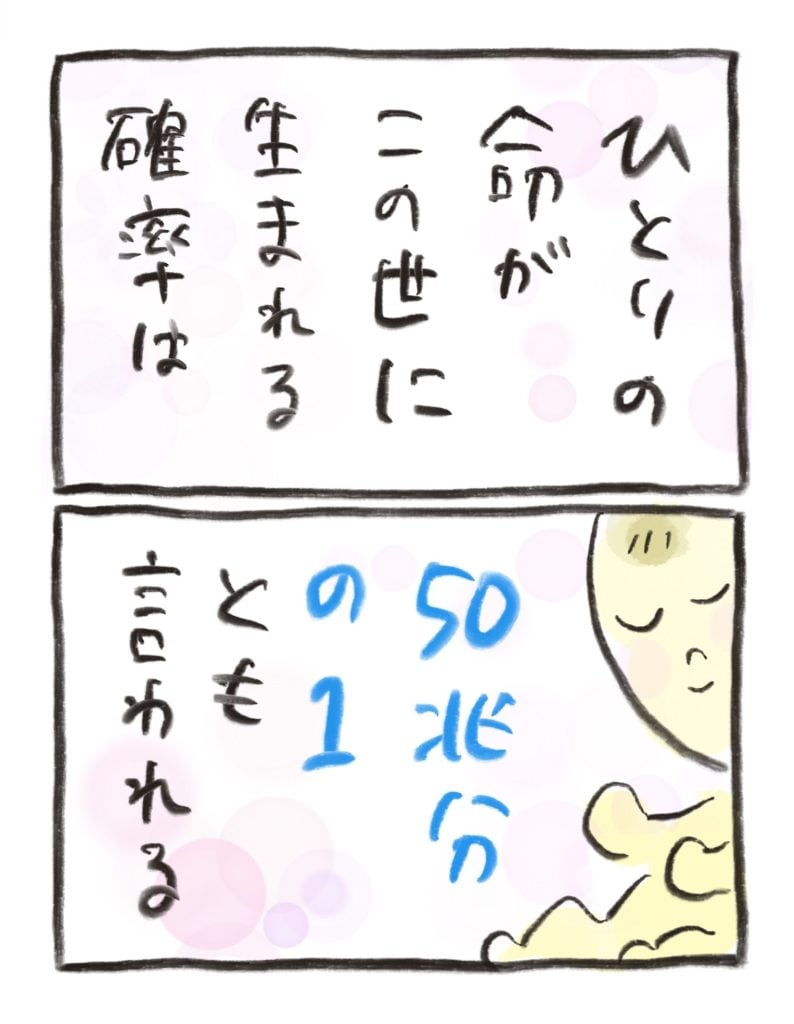 ひとりの
命が
この世に
生まれる
確率は
50兆分
の1
とも
言われる